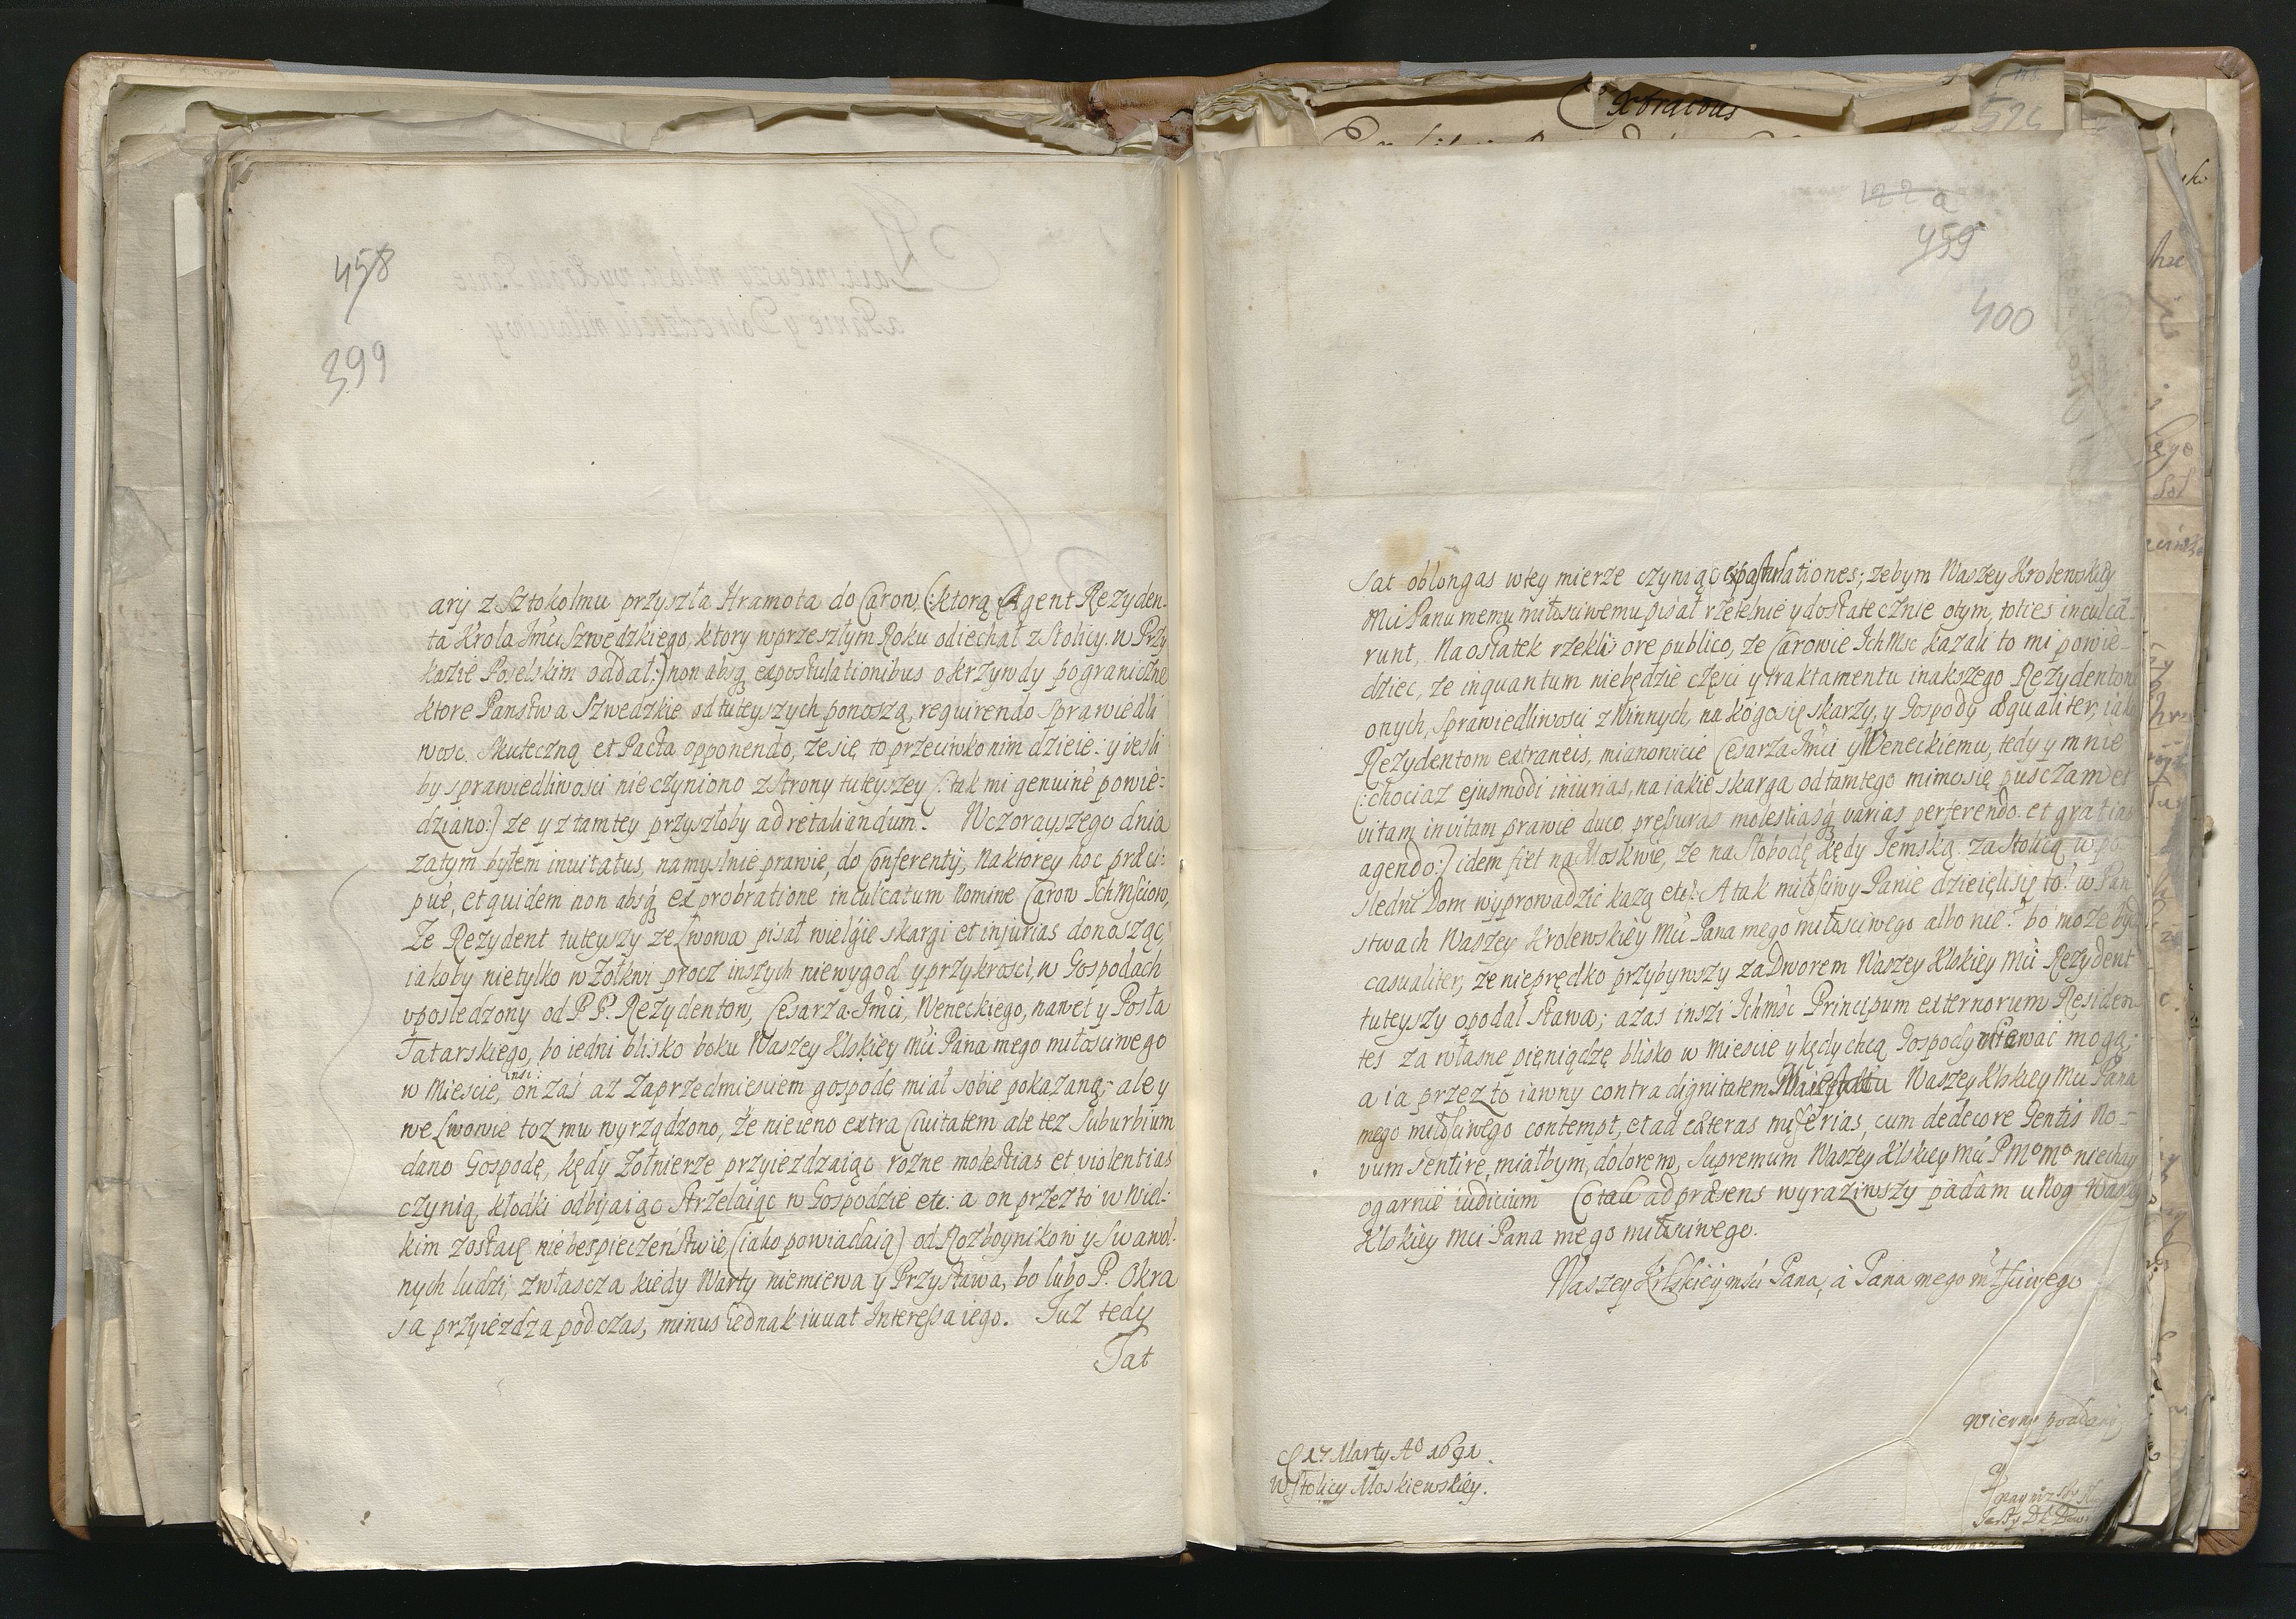 458
399
ary z Sztokolmu przyszła Hramota do Carow, (:ktorą Agent Rezyden-
ta Krola Jmci Szwedzkiego, ktory w przeszłym Roku odiechał z Stolicy. w Przy
kazie Poselskim oddał:) non absq; expostulationibus o krzywdy pograniczne
ktore Panstwa Szwedzkie od tuteyszych ponoszą, requirendo Sprawiedli
wosc. Skuteczną et Pacta opponendo, ze się to przeciwko nim dzieie: y iesli
by sprawiedliwosci nie czyniono z strony tuteyszey (: tak mi genuine powie-
dziano:) ze y z tamtey przyszłoby ad retaliandum. Wczorayszego dnia
zatym byłem inuitatus, namyslnie prawie, do Conferentij, na ktorey hoc præci-
pué, et quidem non absq; exprobratione inculcatum Nomine Carow Ichmściow,
Ze Rezydent tuteyszy ze Lwowa pisał wielgie skargi et injurias donosząc,
iakoby nie tylko w Zołkwi procz inszych niewygod y przykrosci, w Gospodach
vposledzony od P.P. Rezydentow, Cesarza Jmci, Weneckiego, nawet y Posła
Tatarskiego, bo iedni blisko boku Waszey Klskiey Mci Pana mego miłosciwego
w Miescie, insi: on zaś az za przedmiesciem gospodę miał sobie pokazaną; ale y
we Lwowie toz mu wyrządzono, że nie ieno extra Ciuitatem ale tez Suburbium
dano Gospodę, kędy żołnierze przyiezdzaiąc rozne molestias et violentias
czynią, kłodki odbijaiąc strzelaiąc w Gospodzie etc: a on przez to w wiel-
kim zostaię niebespieczeństwie, (iako powiadaią) od Rozboynikow y Swawol-
nych ludzi, zwłascza kiedy Warty niemiewa y Przystawa, bo lubo P. Okra
sa przyiezdza podczas, minus iednak iuuat Interessa iego. Juz tedy
Tat
Xbracous
122 a
459
400
Sat oblongas w tey mierze czyniąc expostulationes; zebym Waszey Krolewskiey
Mci Panu memu miłosciwemu pisał rzetelnie y dostatecznie o tym, toties inculca-
runt, Na ostatek rzekli ore publico, ze Carowie Ichmsc kazali to mi powie-
dziec, ze inquantum niebędzie częsci y traktamentu inakszego Rezydentom
onych, Sprawiedliwosci z Winnych, na kogo się skarzy, y Gospody æqualiter, iako
Rezydentom extraneis, mianowicie Cesarza Jmci y Weneckiemu, tedy y mnie
(:chociaz ejusmodi iniurias, na iakie skarga od tamtego mimo się pusczam et
vitam invitam prawie duco, pressuras molestiasq; varias perferendo. et gratias
agendo:) idem fiet na Moskwie, że na Słobodę kędy Jemską za Stolicą w po-
sledni Dom wyprowadzic kazą etc: A tak miłosciwy Panie dzieięli się to? w Pan
stwach Waszey Krolewskiey Mci Pana mego miłosciwego albo nie? bo może być
casualiter, ze nieprędko przybywszy za Dworem Waszey Klskiey Mci Rezydent
tuteyszy opodal stawa; azas inszi Ichmśc Principum externorum Residen-
tes za własne pieniądzę blisko w Miescie y kędy chcą Gospody miewać mogą;
a ia przez to iawny contra dignitatem Maiestatu Waszey Klskiey Mci Pana
mego miłosciwego contempt, et ad exteras miserias, cum dedecore Gentis No-
vum sentire, miałbym, dolorem, Supremum Waszey Klskiey Mci P. Mo Mo niechay
ogarnie iudicium Co tak ad præsens wyraziwszy padam u Nog Waszey
Klskiey Mci Pana mego miłosciwego.
Waszey Krlskiey mści Pana, à Pana mego m'łsciwego
wierny poddany
17 Marty Ao 1691.
w Stolicy Moskiewskiey.